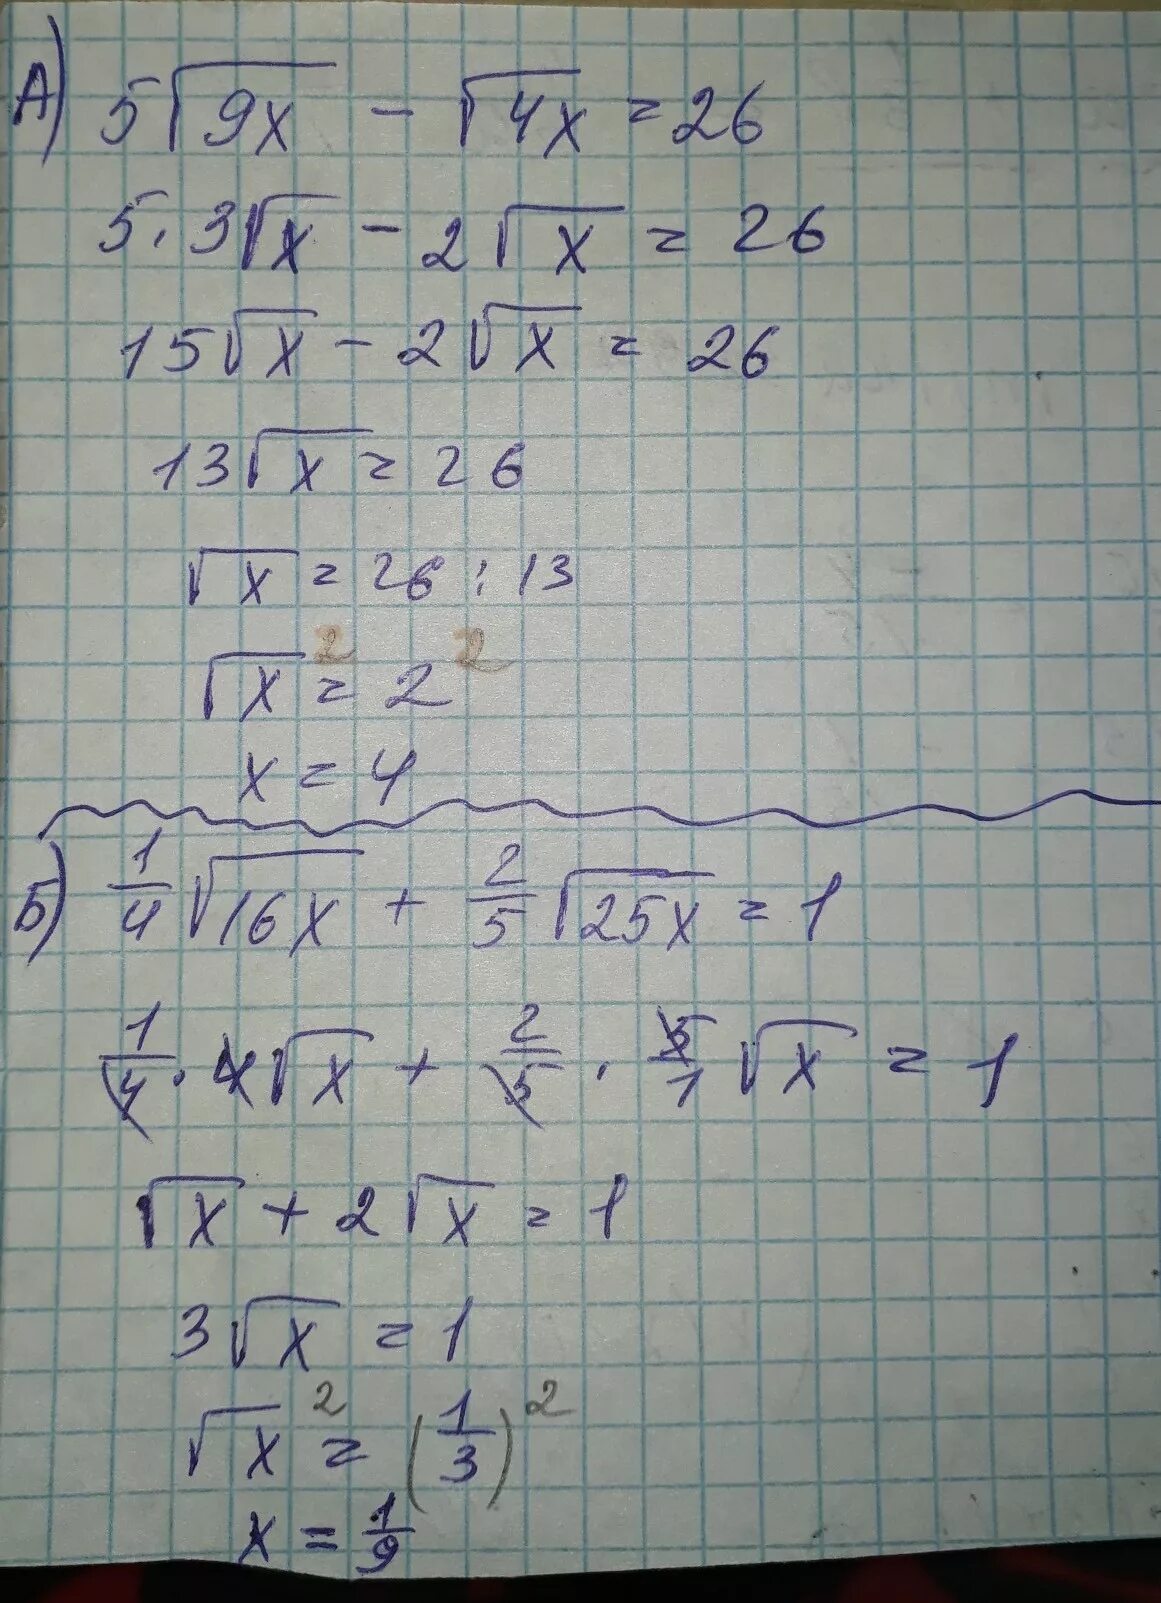 А) 5√9x - √4x = 26
5·3√x - 2√x = 26
15√x - 2√x = 26
13√x = 26
√x = 26 : 13
√x² = 2²
x = 4
Б) 1/4 √16x + 2/5 √25x = 1
1/4 · 4√x + 2/5 · 5/1 √x = 1
√x + 2√x = 1
3√x = 1
√x² = (1/3)²
x = 1/9